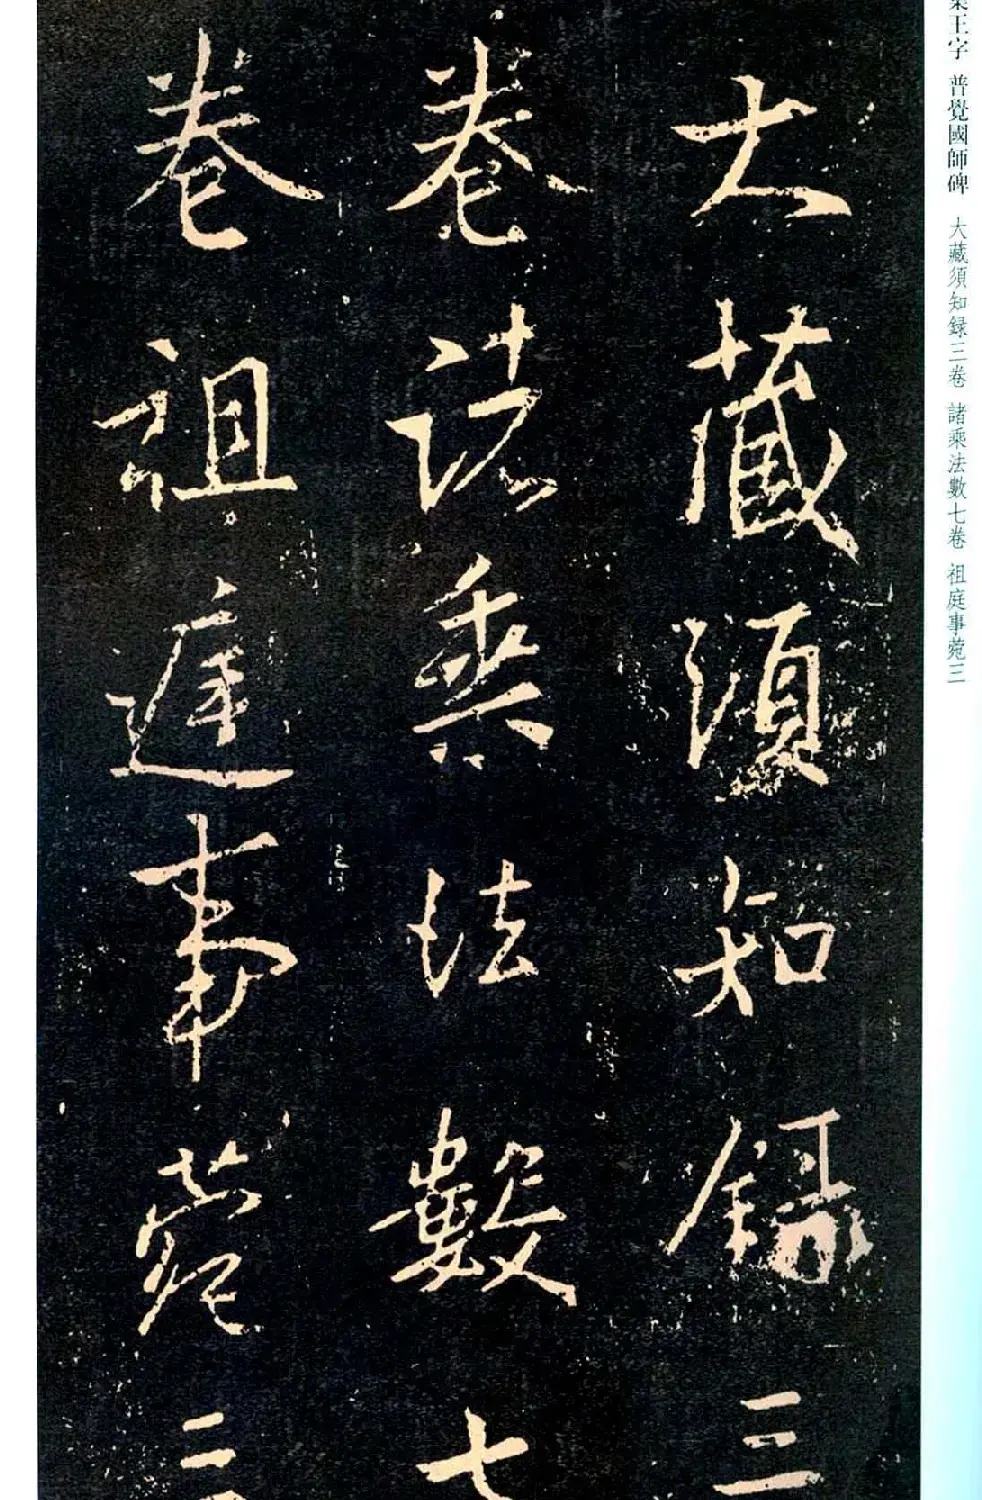 王字 普覺國師碑 大藏須知録三卷 諸乘法數七卷 祖庭事菀三
大藏須知録三
卷諸乘法數七
卷祖庭事菀三